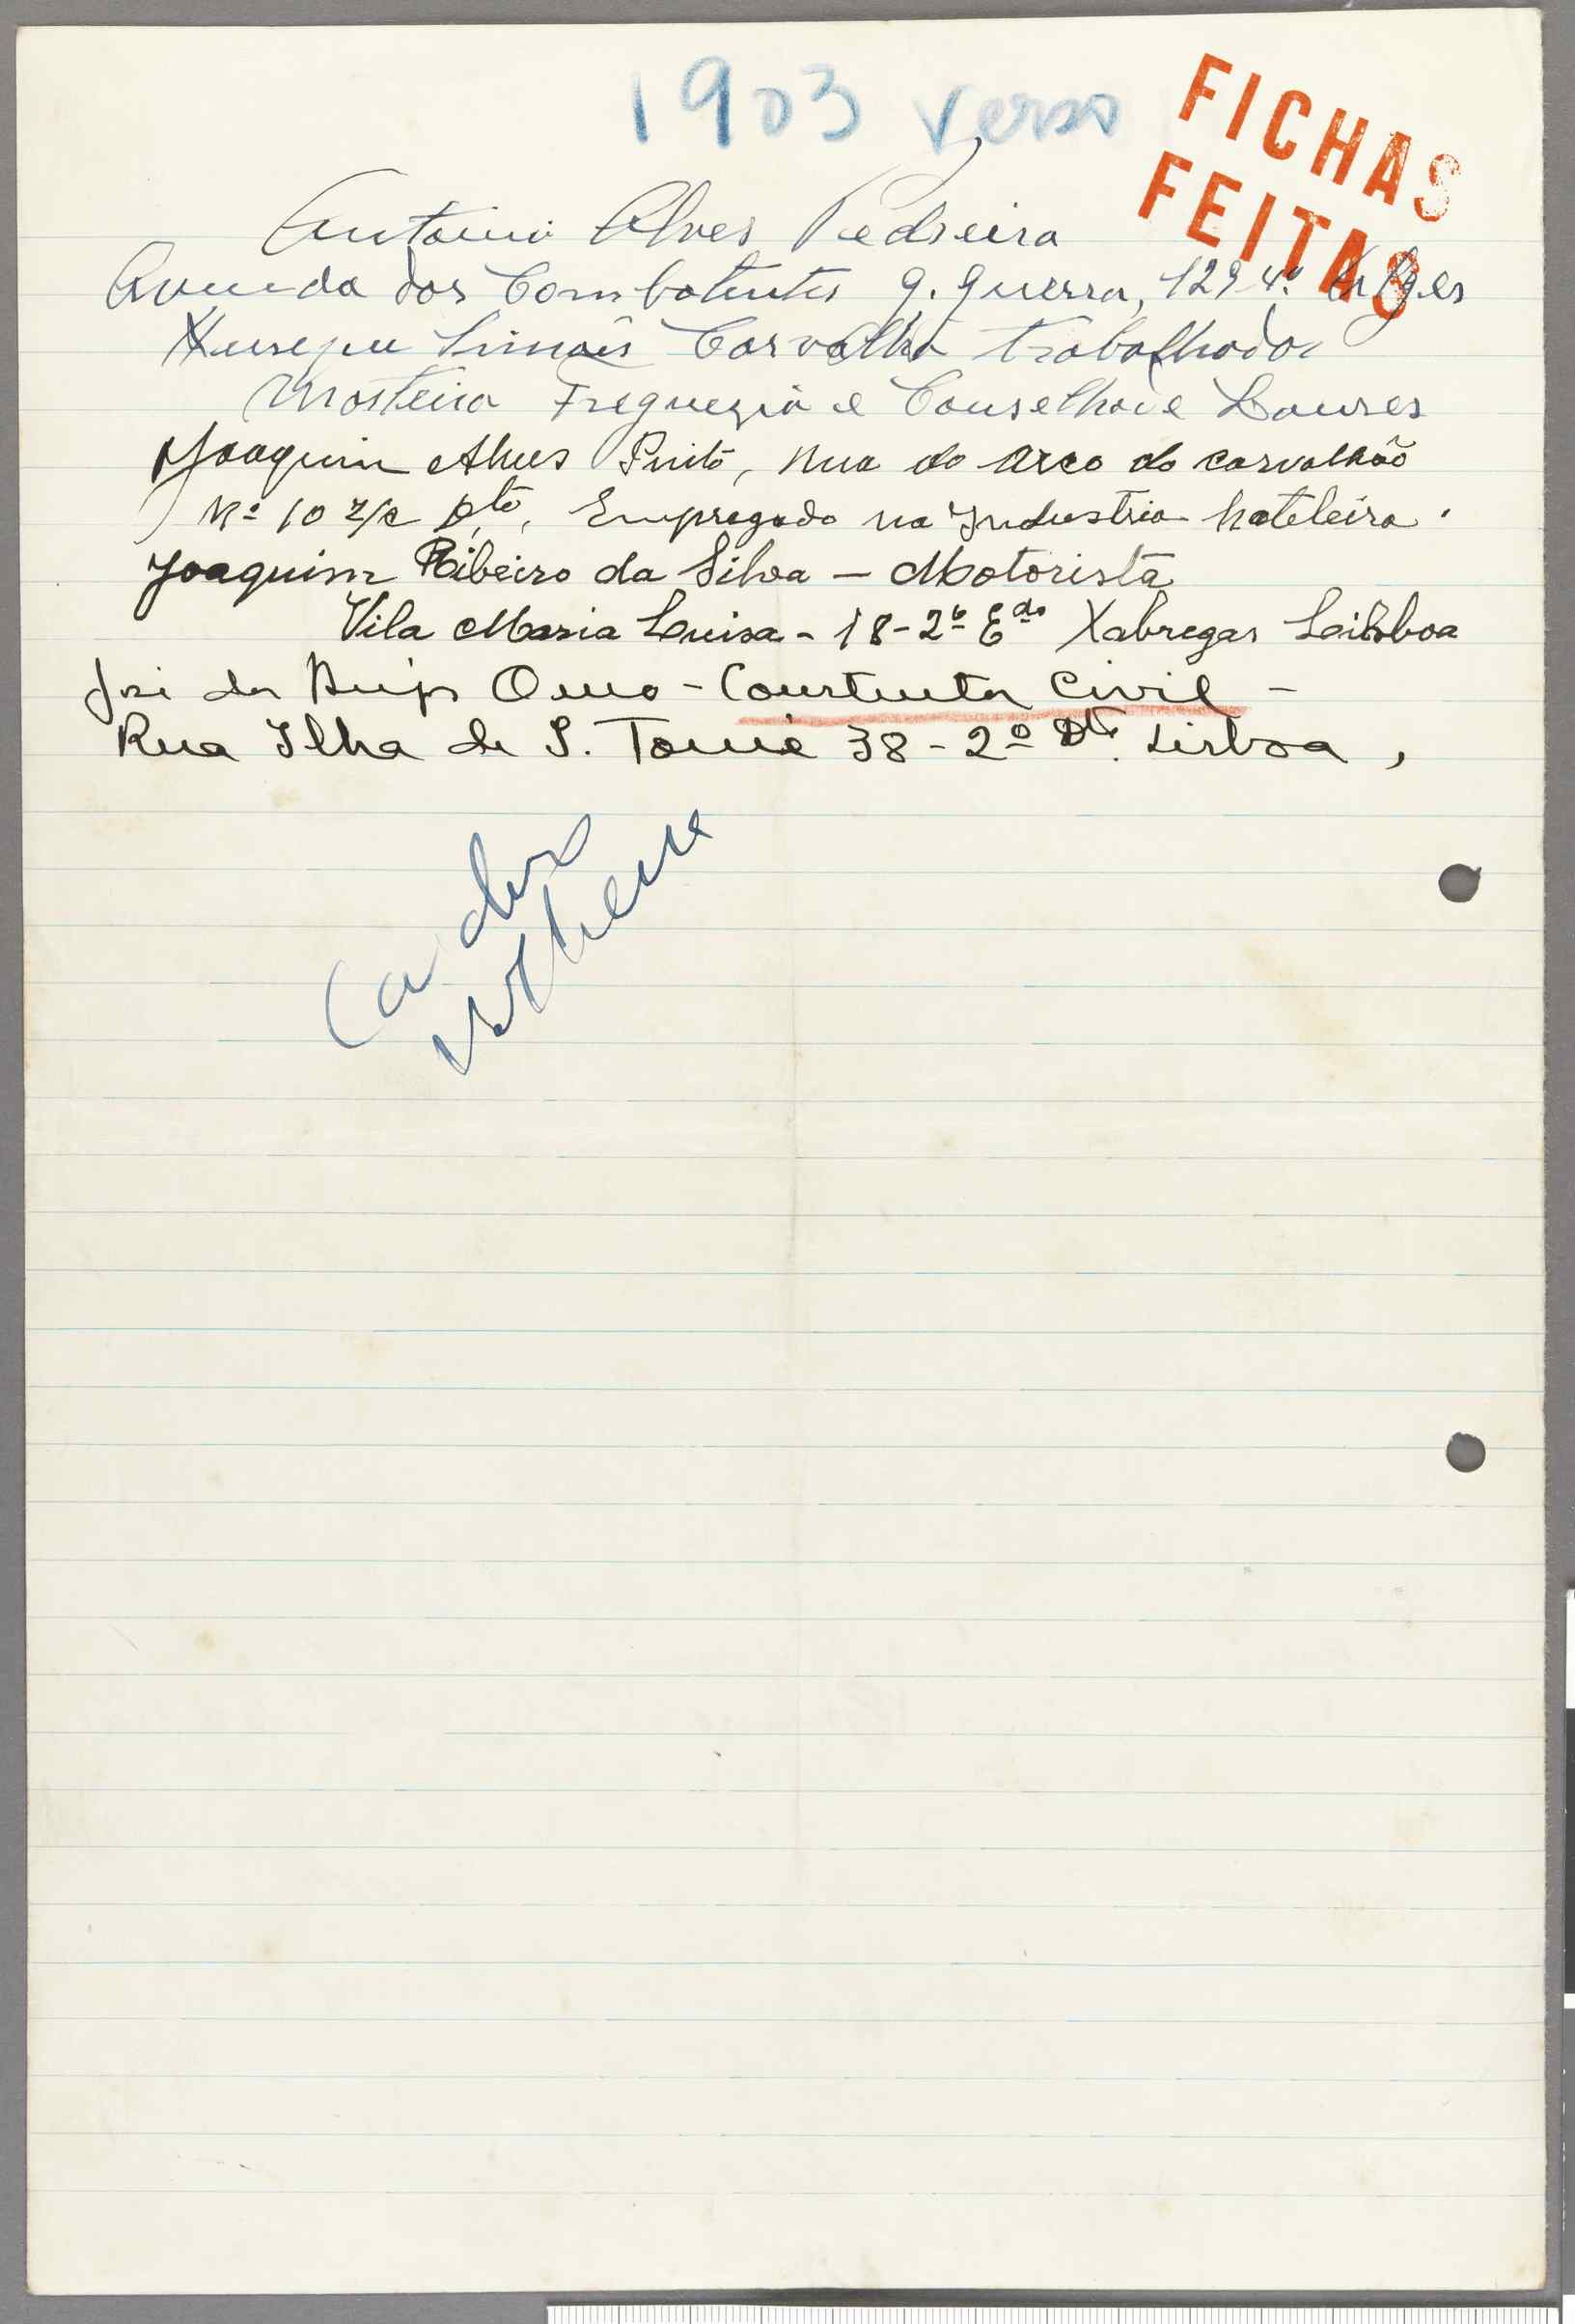 1903 verso
FICHAS
FEITAS
Antonio Alves Pedreira
Avenida dos Combatentes g. guerra, 129 4º Alges
Simões Carvalho trabalhador
Freguezia e Conselho de Loures
Joaquim Alves Pinto, Rua do Arco do carvalhão
Nº 10 r/c Dto, Empregado na Industria hoteleira.
Joaquim Ribeiro da Silva — Motorista
Vila Maria Luisa - 18-2º Edo Xabregas Lisboa
José dos Ouro - Construtor Civil -
Rua Ilha de S. Tomé 38 - 2º Dto. Lisboa,